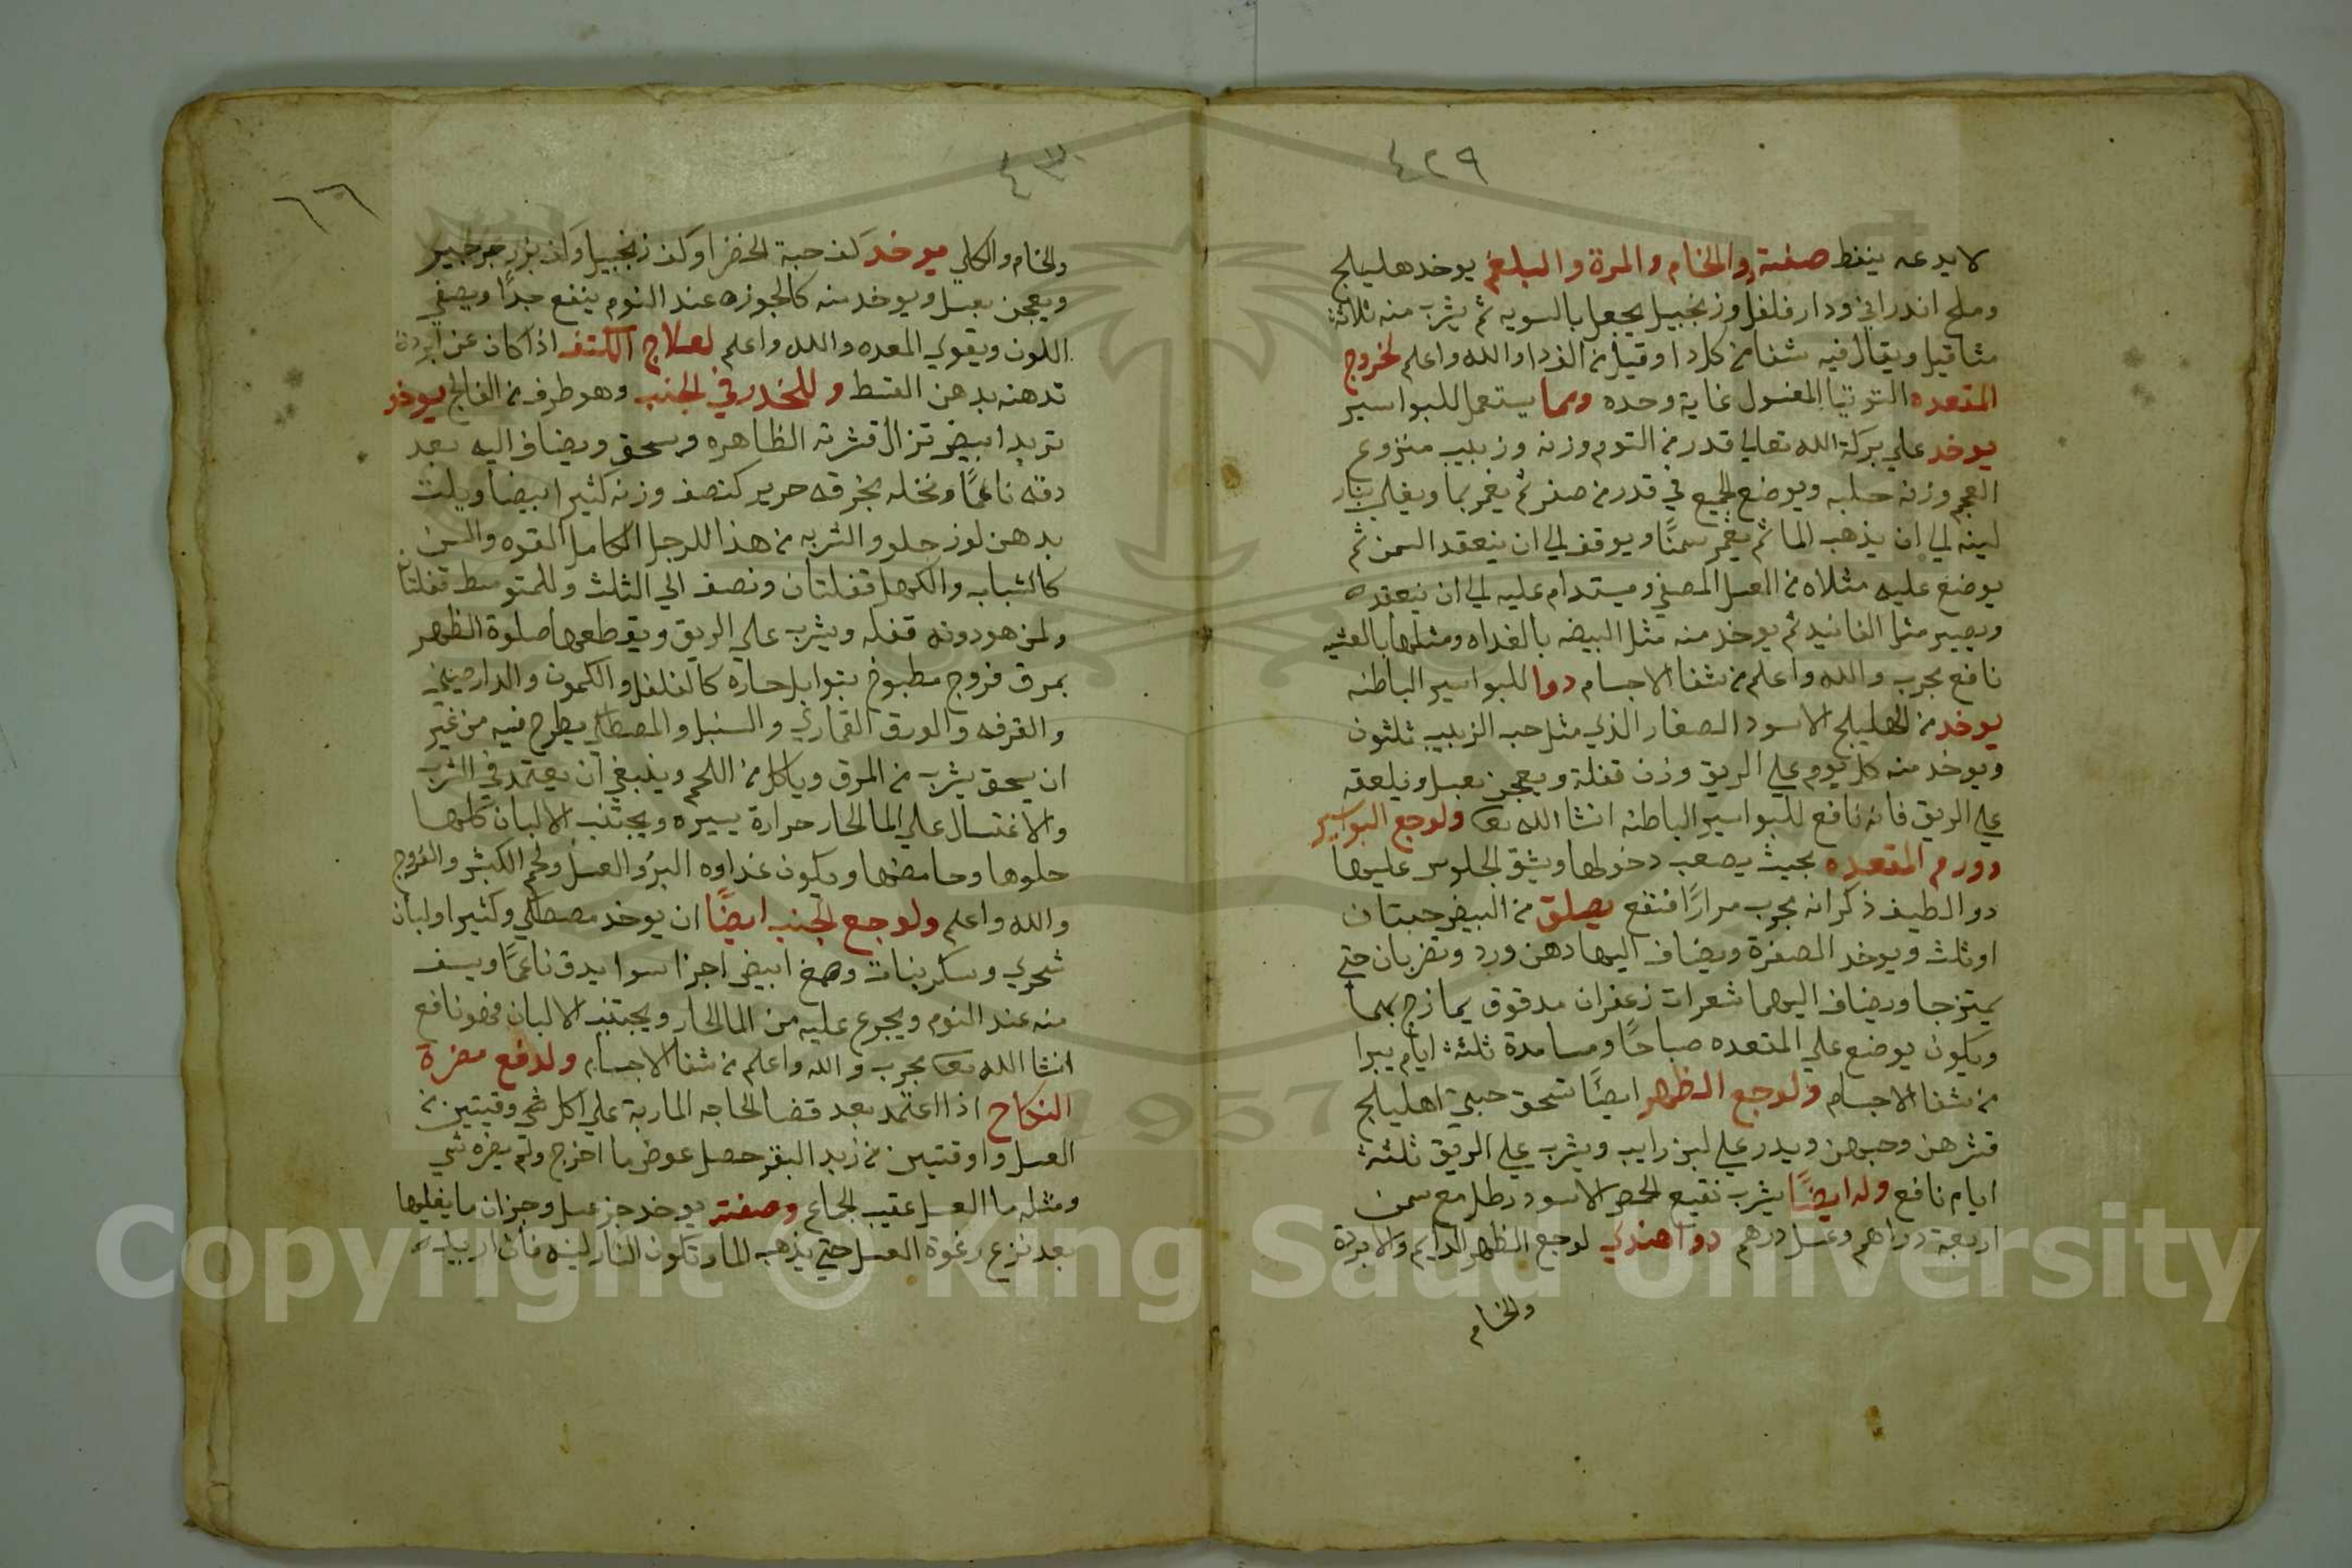 ٤٢٩
لا يدعه ينغط صفته والخام والمرة والبلغم يوخد هليلج
وملح اندراني ودار فلفل وزنجبيل يجعل بالسويه ثم يشرب منه ثلاثة
مثاقيل ويقال فيه شفا من كل دا وقيل من الذردا والله واعلم لخروج
المقعده التوتيا المغسول غاية وحده ومما يستعمل للبواسير
يوخد علي بركة الله تعالي قدر من التوم وزنه وزبيب منزوع
العجم وزنه حلبه ويوضع الجميع في قدر من صفر ثم يغمر بما ويغلي بنار
لينه الي ان يذهب الما ثم يغمر سمنًا ويوقف الي ان ينعقد السمن ثم
يوضع عليه مثلاه من العسل المصفي ويستدام عليه الي ان ينعقده
ويصير مثل الفانيد ثم يوخد منه مثل البيضه بالغداه ومثلها بالعشيه
نافع مجرب والله واعلم من شفا الاجسام دوا للبواسير الباطنه
يوخد من الهليلج الاسود الصغار الذي مثل حب الزبيب ثلثون
ويوخد منه كل يوم علي الريق وزن قفلة ويعجن بعسل ويلعقه
علي الريق فانه نافع للبواسير الباطنه انشا الله تعا ولوجع البواسير
وورم المقعده بحيث يصعب دخولها ويشق الجلوس عليها
دوا لطيف ذكر انه مجرب مرارًا فنفع يصلق من البيض حبتان
او ثلث ويوخد الصفرة ويضاف اليها دهن ورد وتضربان حتي
يمتزجا ويضاف اليهما شعرات زعفران مدقوق يمازج بهما
ويكون يوضع علي المقعده صباحًا ومسا مدة ثلثة ايام يبرا
من شفا الاجسام ولوجع الظهر ايضًا تسحق حبتي اهليلج
قشرهن وحبهن ويدر علي لبن رايب ويشرب علي الريق ثلثة
ايام نافع وله ايضًا يشرب نقيع الحمص الاسود رطل مع سمن
اربعة دراهم وعسل درهم دوا هندي لوجع الظهر الدايم والابردة
والخام
٤٣٠
٦٦
والخام والكلي يوخد كف حبة الخضرا وكف زنجبيل وكف بزر جرجير
ويعجن بعسل ويوخد منه كالجوزه عند النوم ينفع جدًا ويصفي
اللون ويقوي المعده والله واعلم لعلاج الكتف اذا كان عن ابردة
تدهنه بدهن القسط وللخدر في الجنب وهو طرف من الفالج يوخد
تربد ابيض تزال قشرته الظاهره ويسحق ويضاف اليه بعد
دقه ناعمًا ونخله بخرقه حرير كنصف وزنه كثيرا بيضا ويلت
بدهن لوز حلو والشربه من هذا للرجل الكامل القوه والسن
كالشباب والكهل قفلتان ونصف الي الثلث وللمتوسط قفلتان
ولمن هو دونه قفله ويشرب علي الريق ويقطعها صلوة الظهر
بمرق فروج مطبوخ بتوابل حاره كالفلفل والكمون والدارصيني
والقرفه والورق القماري والسنبل والمصطكي يطرح فيه من غير
ان يسحق يشرب من المرق وياكل من اللحم وينبغي ان يعتمد في الشرب
والاغتسال علي الما الحار حرارة يسيره ويجتنب الالبان كلها
حلوها وحامضها ويكون غداوه البر والعسل ولحم الكبش والفروج
والله واعلم ولوجع الجنب ايضًا ان يوخد مصطكي وكثيرا ولبان
شحري وسكر نبات وصمغ ابيض اجزا سوا يدق ناعمًا ويسف
منه عند النوم ويجرع عليه من الما الحار ويجتنب الالبان فهو نافع
انشا الله تعا مجرب والله واعلم من شفا الاجسام ولدفع مضرة
النكاح اذا اعتمد بعد قضا الحاجه الماربة علي اكل شي وقيتين من
العسل واوقتيين من زبد البقر حصل عوض ما اخرج ولم يضره شي
ومثله ما العسل عقيب الجماع وصفته يوخد جز عسل وجزان ما يغليها
بعد نزع رغوة العسل حتي يذهب الما وتكون النار لينه فان اريد
Copyright © King Saud University
1957